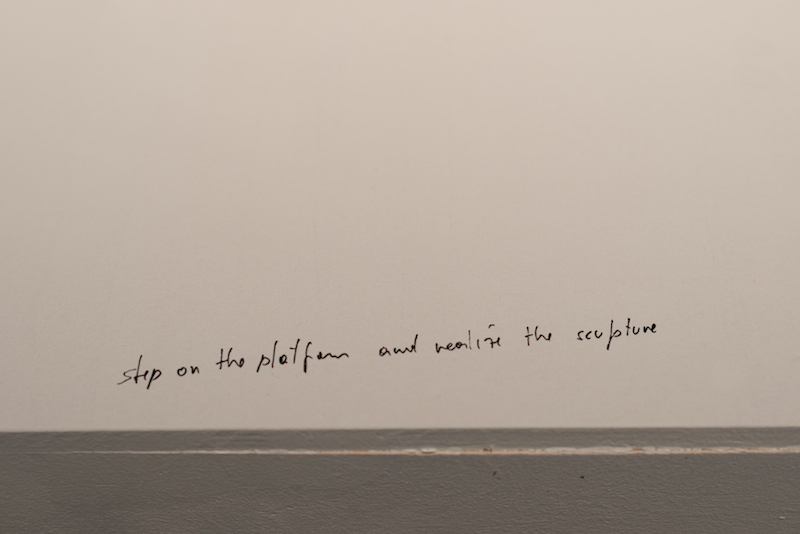 step on the platform and realize the sculpture